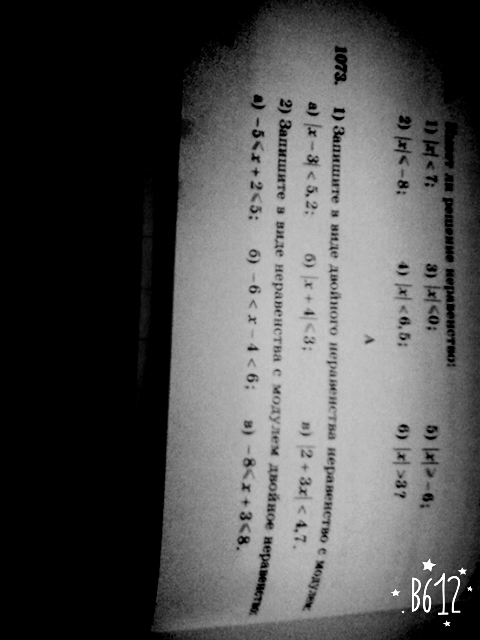 Имеет ли решение неравенство:
1) |x| < 7; 3) |x| ⩽ 0; 5) |x| > −6;
2) |x| ⩽ −8; 4) |x| < 6,5; 6) |x| > 3?
А
1073. 1) Запишите в виде двойного неравенства неравенство с модулем
а) |x − 3| < 5,2; б) |x + 4| ⩽ 3; в) |2 + 3x| < 4,7.
2) Запишите в виде неравенства с модулем двойное неравенство
а) −5 ⩽ x + 2 ⩽ 5; б) −6 < x − 4 < 6; в) −8 ⩽ x + 3 ⩽ 8.
B612